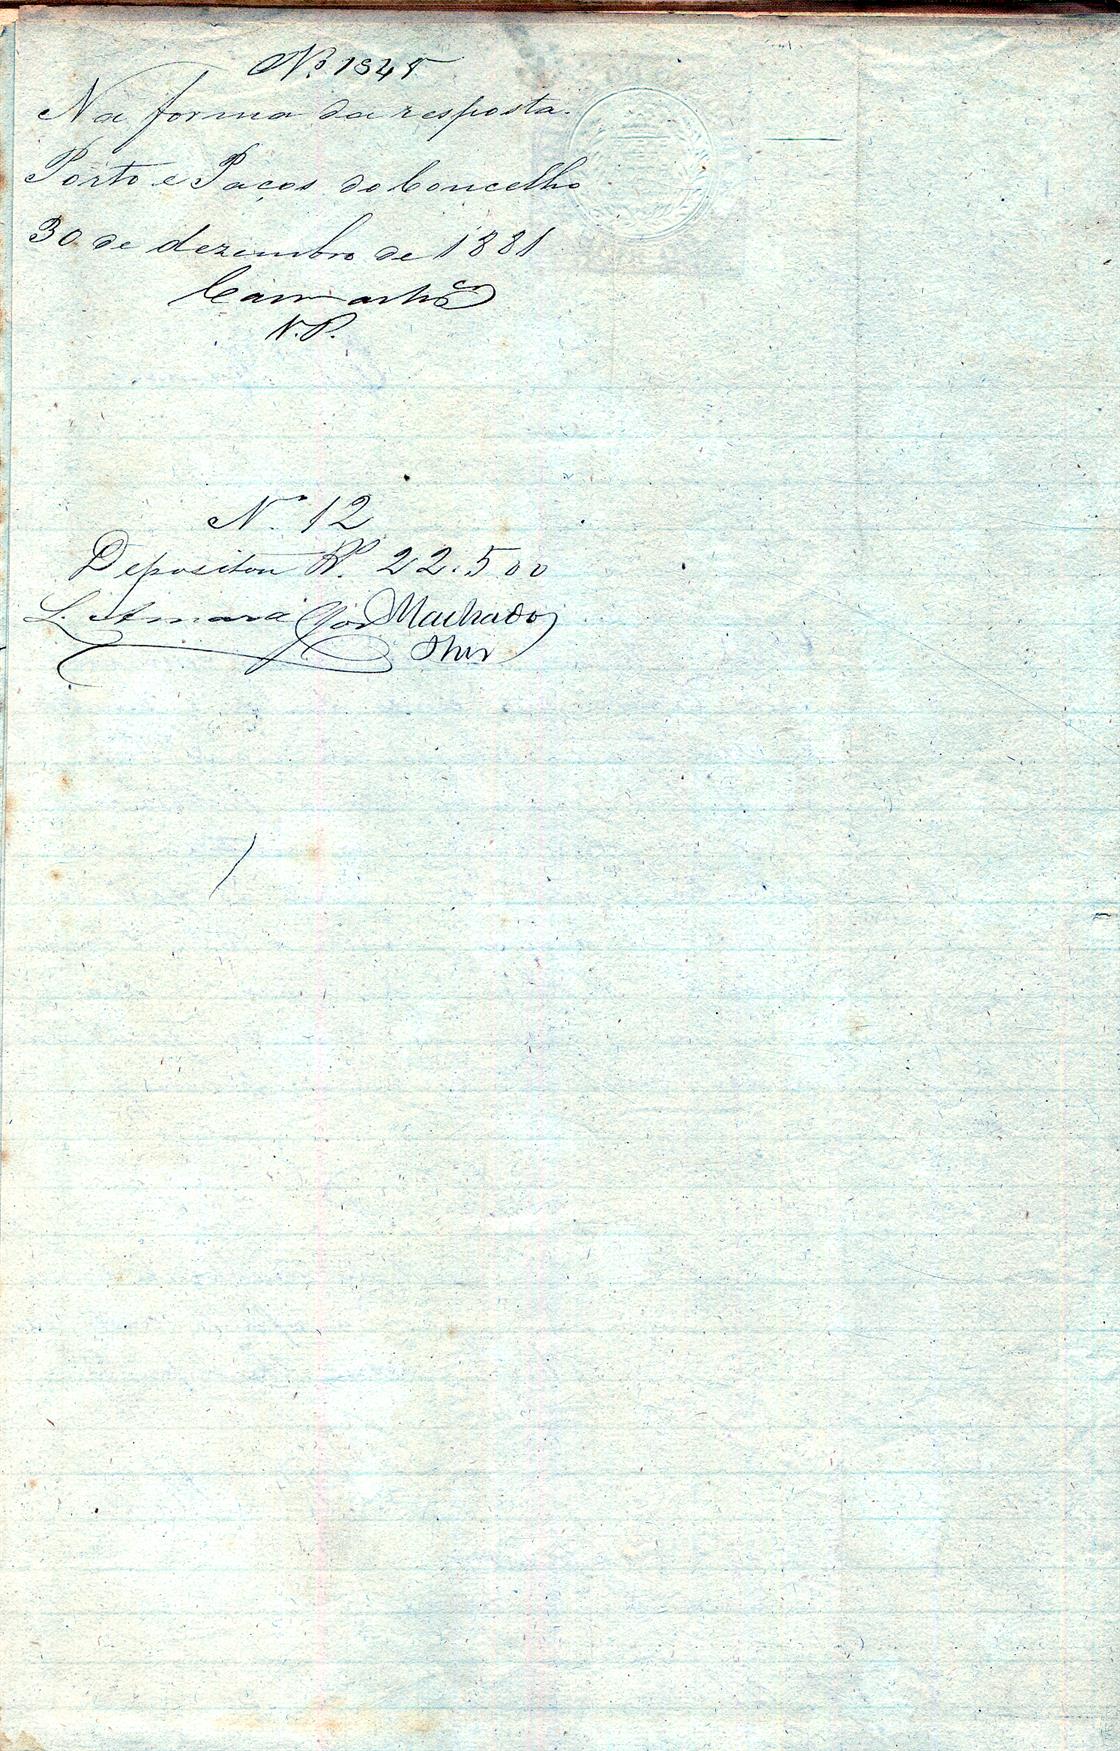 Nº 1345
Na forma da resposta.
Porto e Paços do Concelho
30 de dezembro de 1881
N.P.
Nº 12
Depositou Rs. 22.500
L. Amaral Machado